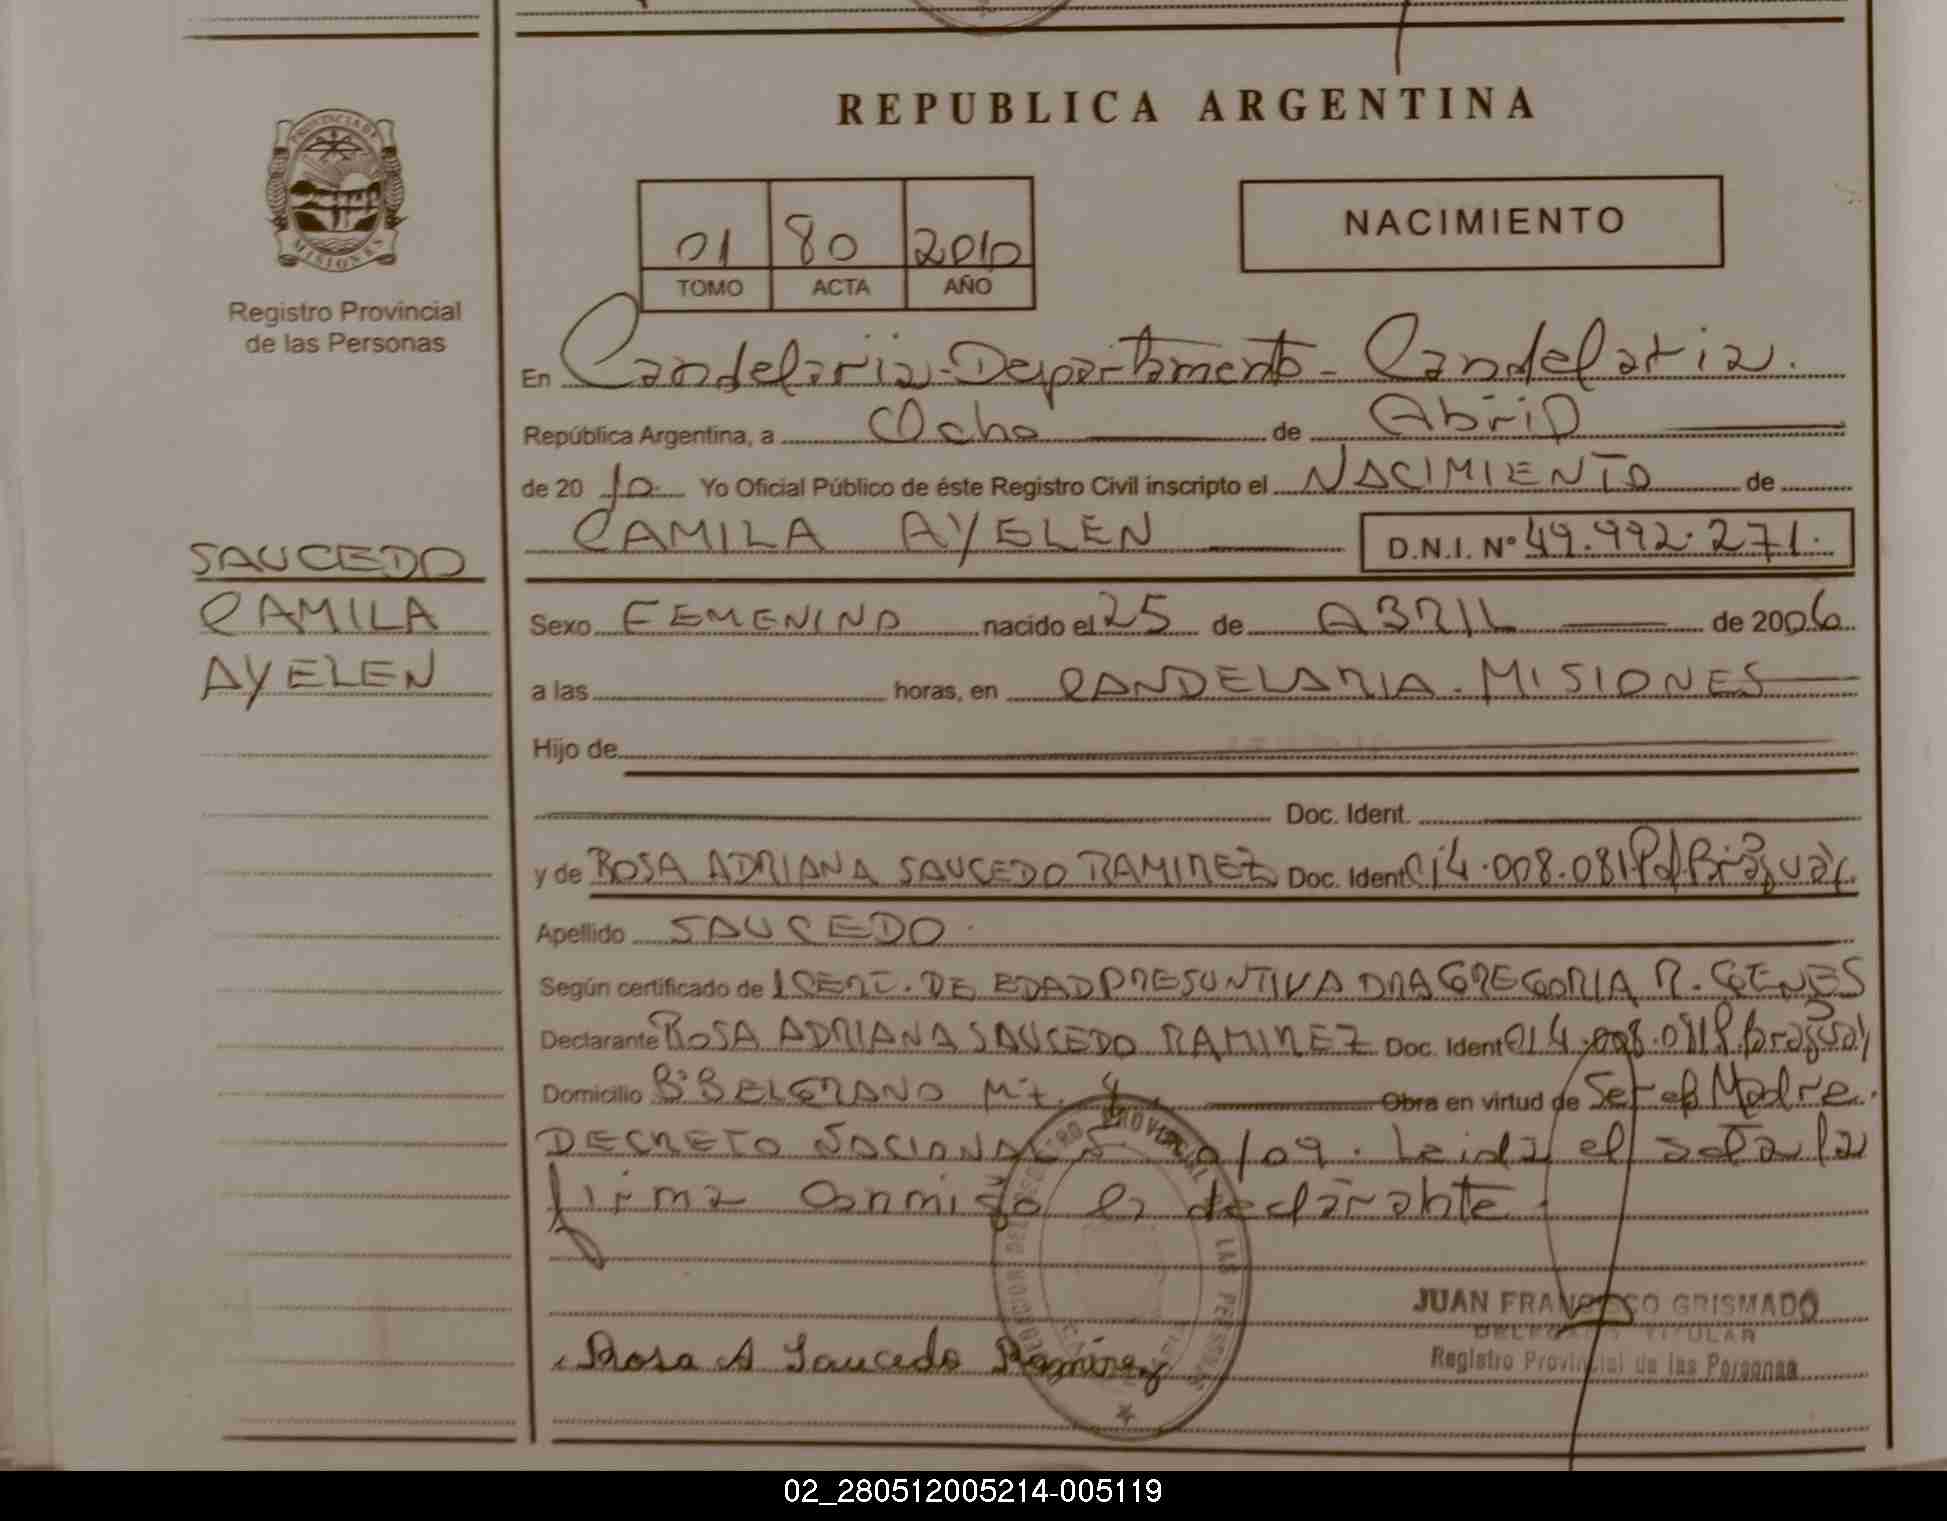 REPUBLICA ARGENTINA
PROVINCIA DE MISIONES
Registro Provincial
de las Personas
01 80 2010
TOMO ACTA AÑO
NACIMIENTO
En Candelaria-Departamento-Candelaria.
República Argentina, a Ocho de Abril
de 2010 Yo Oficial Público de éste Registro Civil inscripto el NACIMIENTO de
CAMILA AYELEN D.N.I. Nº 49.992.271.
SAUCEDO
CAMILA
AYELEN
Sexo FEMENINO nacido el 25 de ABRIL de 2006
a las horas, en CANDELARIA. MISIONES
Hijo de
Doc. Ident.
y de ROSA ADRIANA SAUCEDO RAMIREZ Doc. Ident. 4.008.081
Apellido SAUCEDO
Según certificado de CERT. DE EDAD PRESUNTIVA DRA GREGORIA R.
Declarante ROSA ADRIANA SAUCEDO RAMIREZ Doc. Ident 4.008.081
Domicilio Bº BELGRANO Mz. 4. Obra en virtud de Ser el Madre.
DECRETO NACIONAL 90/09. Leida el acta la
firma conmigo la declarante.
JUAN FRANCISCO GRISMADO
DELEGADO TITULAR
Registro Provincial de las Personas
Rosa A Saucedo Ramirez
02_280512005214-005119